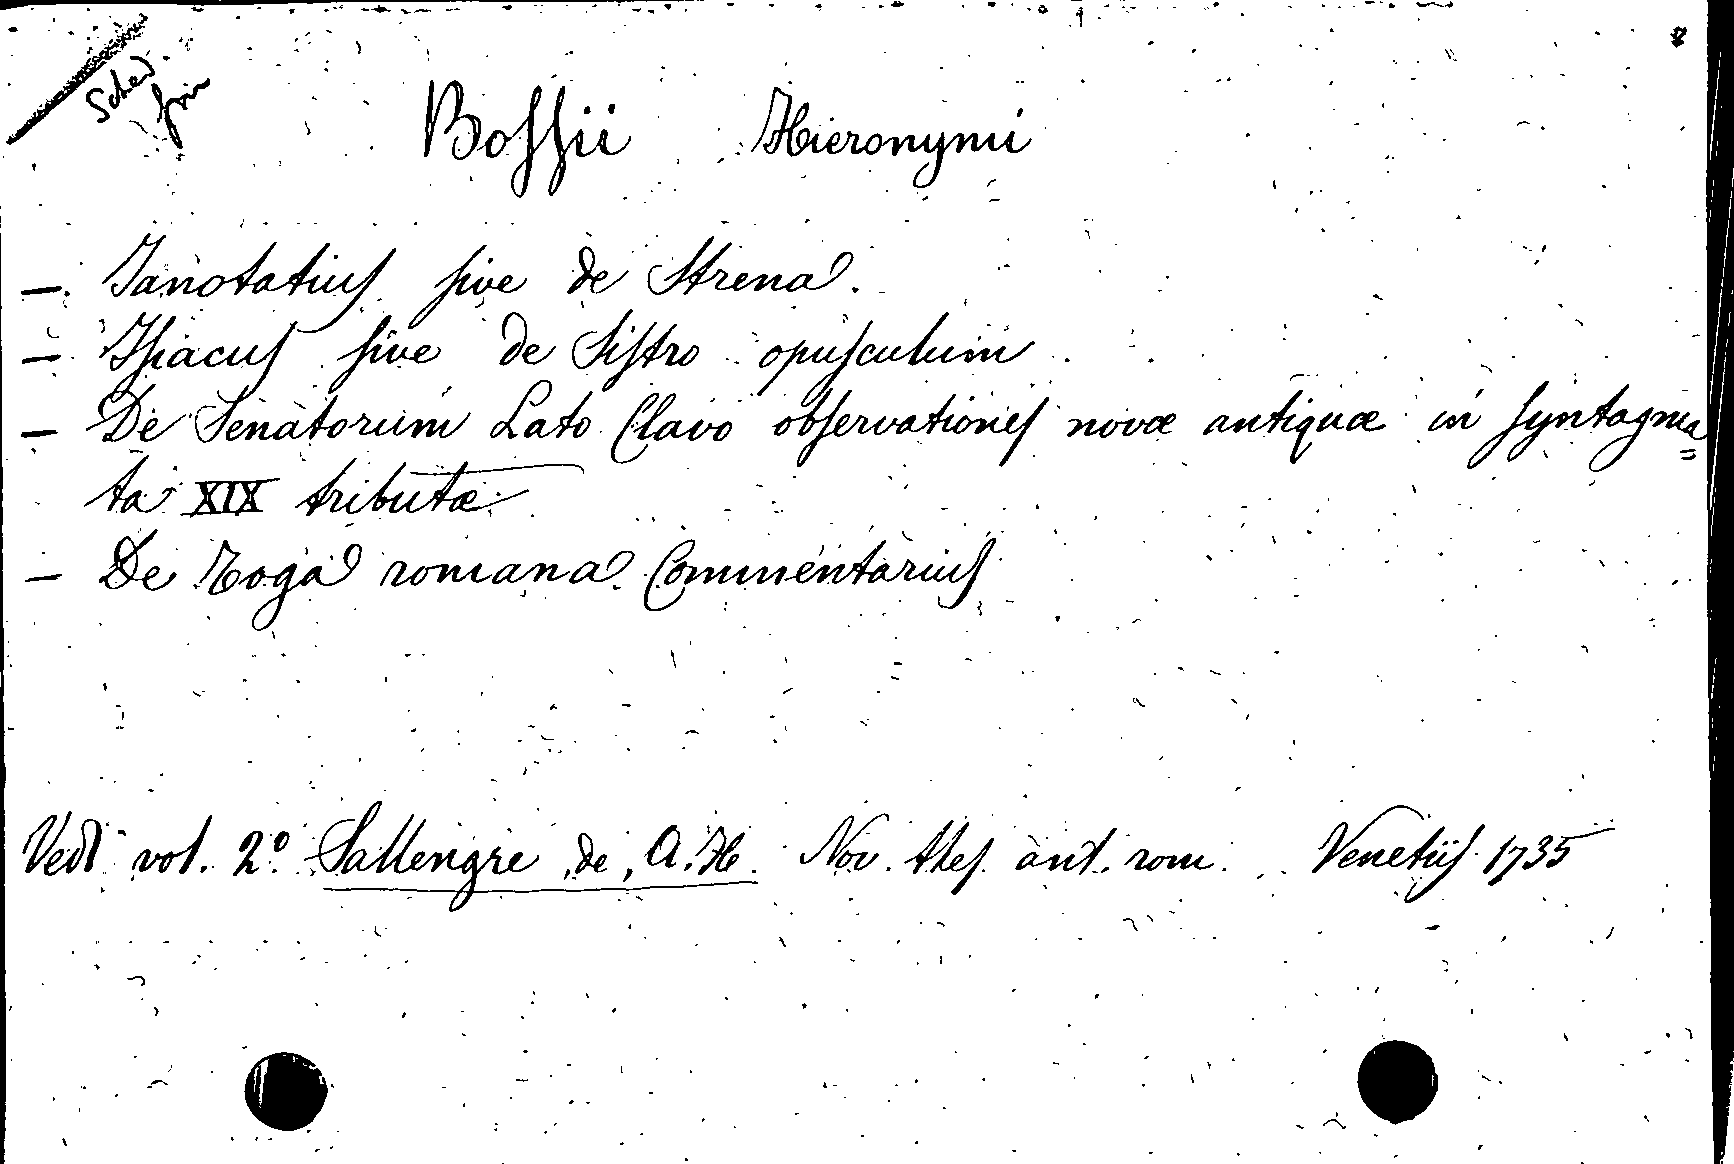 Sched
Bossii Hieronymi
— Janotatius sive de Strena.
— Isiacus sive de Sistro opusculum
— De Senatorum Lato Clavo observationes novæ antiquæ in syntagma=
ta XIX tributæ
— De Toga romana Commentarius
Vedi vol. 2º Sallengre de, A. H. Nov. thes. ant. rom. Venetiis 1735